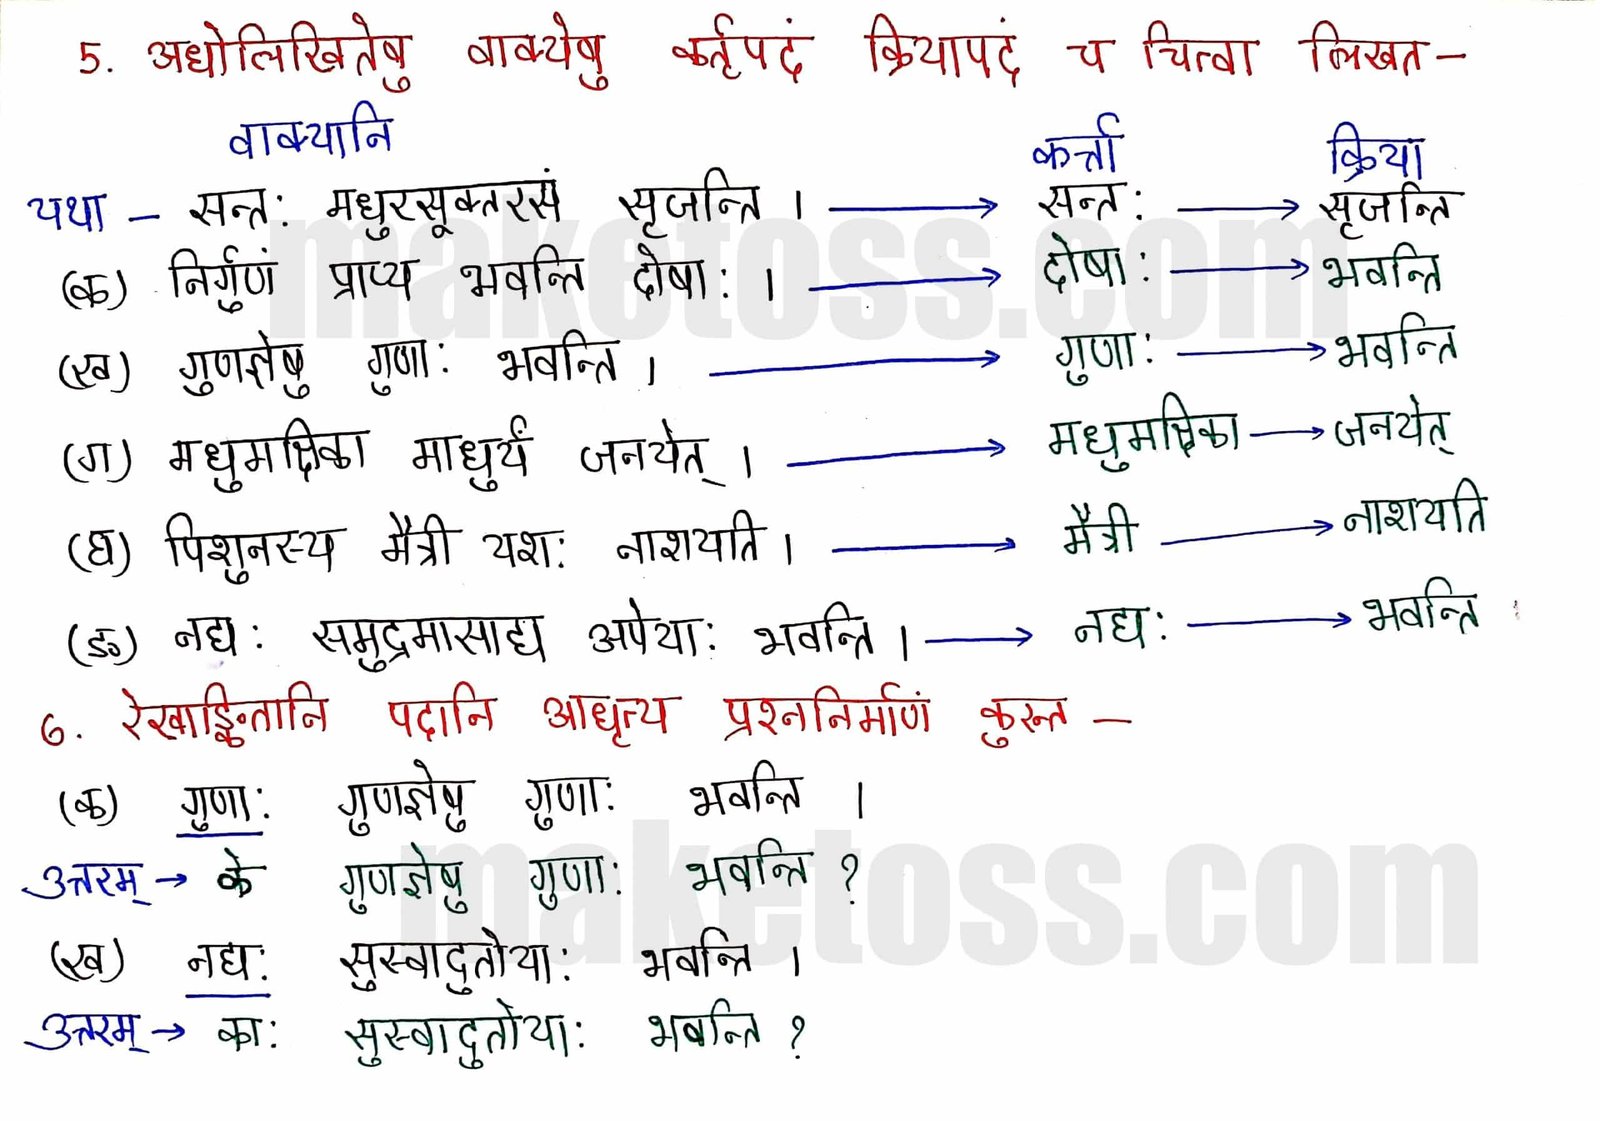 5. अधोलिखितेषु वाक्येषु कर्तृपदं क्रियापदं च चित्वा लिखत –
वाक्यानि कर्त्ता क्रिया
यथा – सन्त: मधुरसूक्तरसं सृजन्ति । → सन्त: → सृजन्ति
(क) निर्गुणं प्राप्य भवन्ति दोषा: । → दोषा: → भवन्ति
(ख) गुणज्ञेषु गुणा: भवन्ति । → गुणा: → भवन्ति
(ग) मधुमक्षिका माधुर्यं जनयेत् । → मधुमक्षिका → जनयेत्
(घ) पिशुनस्य मैत्री यश: नाशयति । → मैत्री → नाशयति
(ङ) नद्य: समुद्रमासाद्य अपेया: भवन्ति । → नद्य: → भवन्ति
6. रेखाङ्कितानि पदानि आधृत्य प्रश्ननिर्माणं कुरुत –
(क) गुणा: गुणज्ञेषु गुणा: भवन्ति ।
उत्तरम् → के गुणज्ञेषु गुणा: भवन्ति ?
(ख) नद्य: सुस्वादुतोया: भवन्ति ।
उत्तरम् → का: सुस्वादुतोया: भवन्ति ?
maketoss.com
maketoss.com